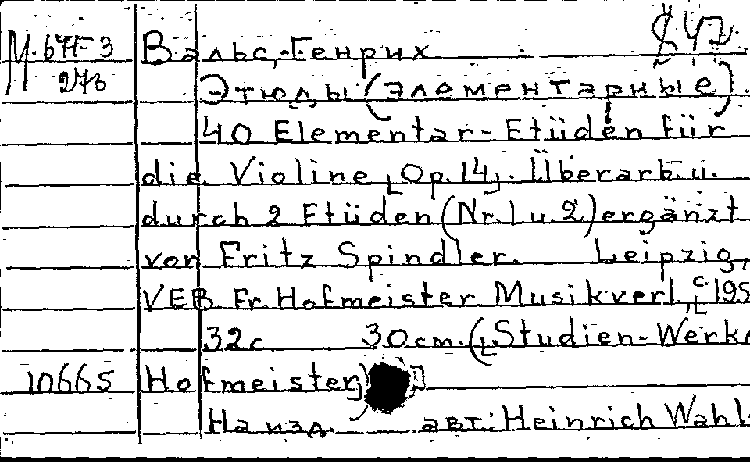 М.677-3 Вальс, Генрих 847.
273 Этюды (элементарные).
40 Elementar-Etüden für
die Violine [Op. 14]. Überarb. u.
durch 2 Etüden (Nr. 1 u 2) ergänzt
von Fritz Spindler. Leipzig,
VEB Fr. Hofmeister Musikverl., [c 195
32 с 30 cm. ([Studien-Werke
10665 Hofmeister])
На изд. авт: Heinrich Wahl